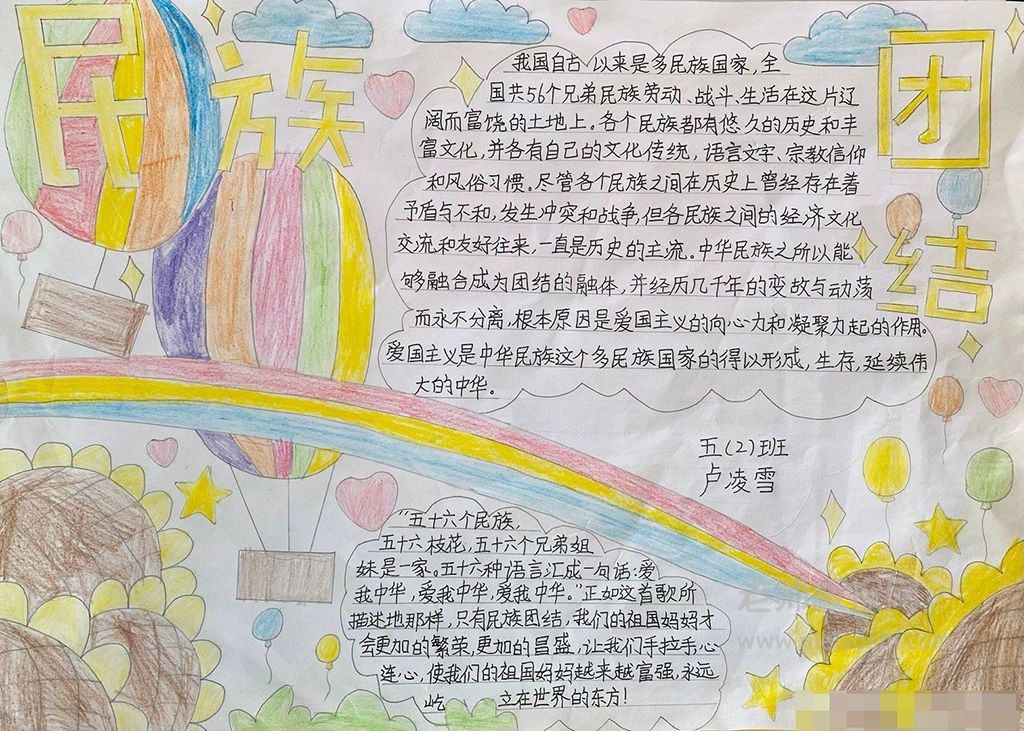 民族团结
我国自古以来是多民族国家,全
国共56个兄弟民族劳动、战斗、生活在这片辽
阔而富饶的土地上。各个民族都有悠久的历史和丰
富文化,并各有自己的文化传统,语言文字、宗教信仰
和风俗习惯。尽管各个民族之间在历史上曾经存在着
矛盾与不和,发生冲突和战争,但各民族之间的经济文化
交流和友好往来,一直是历史的主流。中华民族之所以能
够融合成为团结的融体,并经历几千年的变故与动荡
而永不分离,根本原因是爱国主义的向心力和凝聚力起的作用。
爱国主义是中华民族这个多民族国家的得以形成,生存,延续伟
大的中华。
五(2)班
卢凌雪
“五十六个民族,
五十六枝花,五十六个兄弟姐
妹是一家。五十六种语言汇成一句话:爱
我中华,爱我中华,爱我中华。”正如这首歌所
描述地那样,只有民族团结,我们的祖国妈妈才
会更加的繁荣,更加的昌盛,让我们手拉手心
连心,使我们的祖国妈妈越来越富强,永远
屹立在世界的东方!